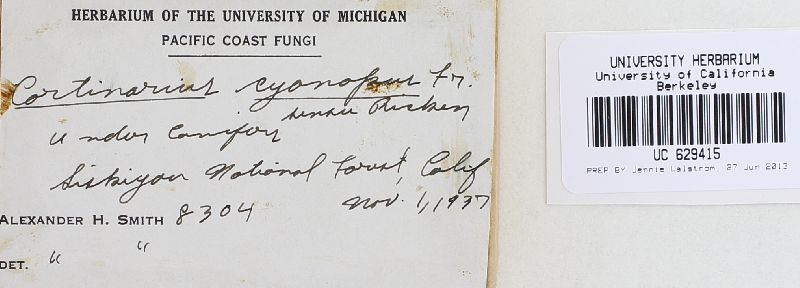 HERBARIUM OF THE UNIVERSITY OF MICHIGAN
PACIFIC COAST FUNGI
Cortinarius cyanopus Fr.
sensu Ricken
Under Conifer
Siskiyou National Forest, Calif
ALEXANDER H. SMITH 8304 Nov. 1, 1937
DET. " "
UNIVERSITY HERBARIUM
University of California
Berkeley
UC 629415
PREP BY Jennie Walstrom, 27 Jun 2013